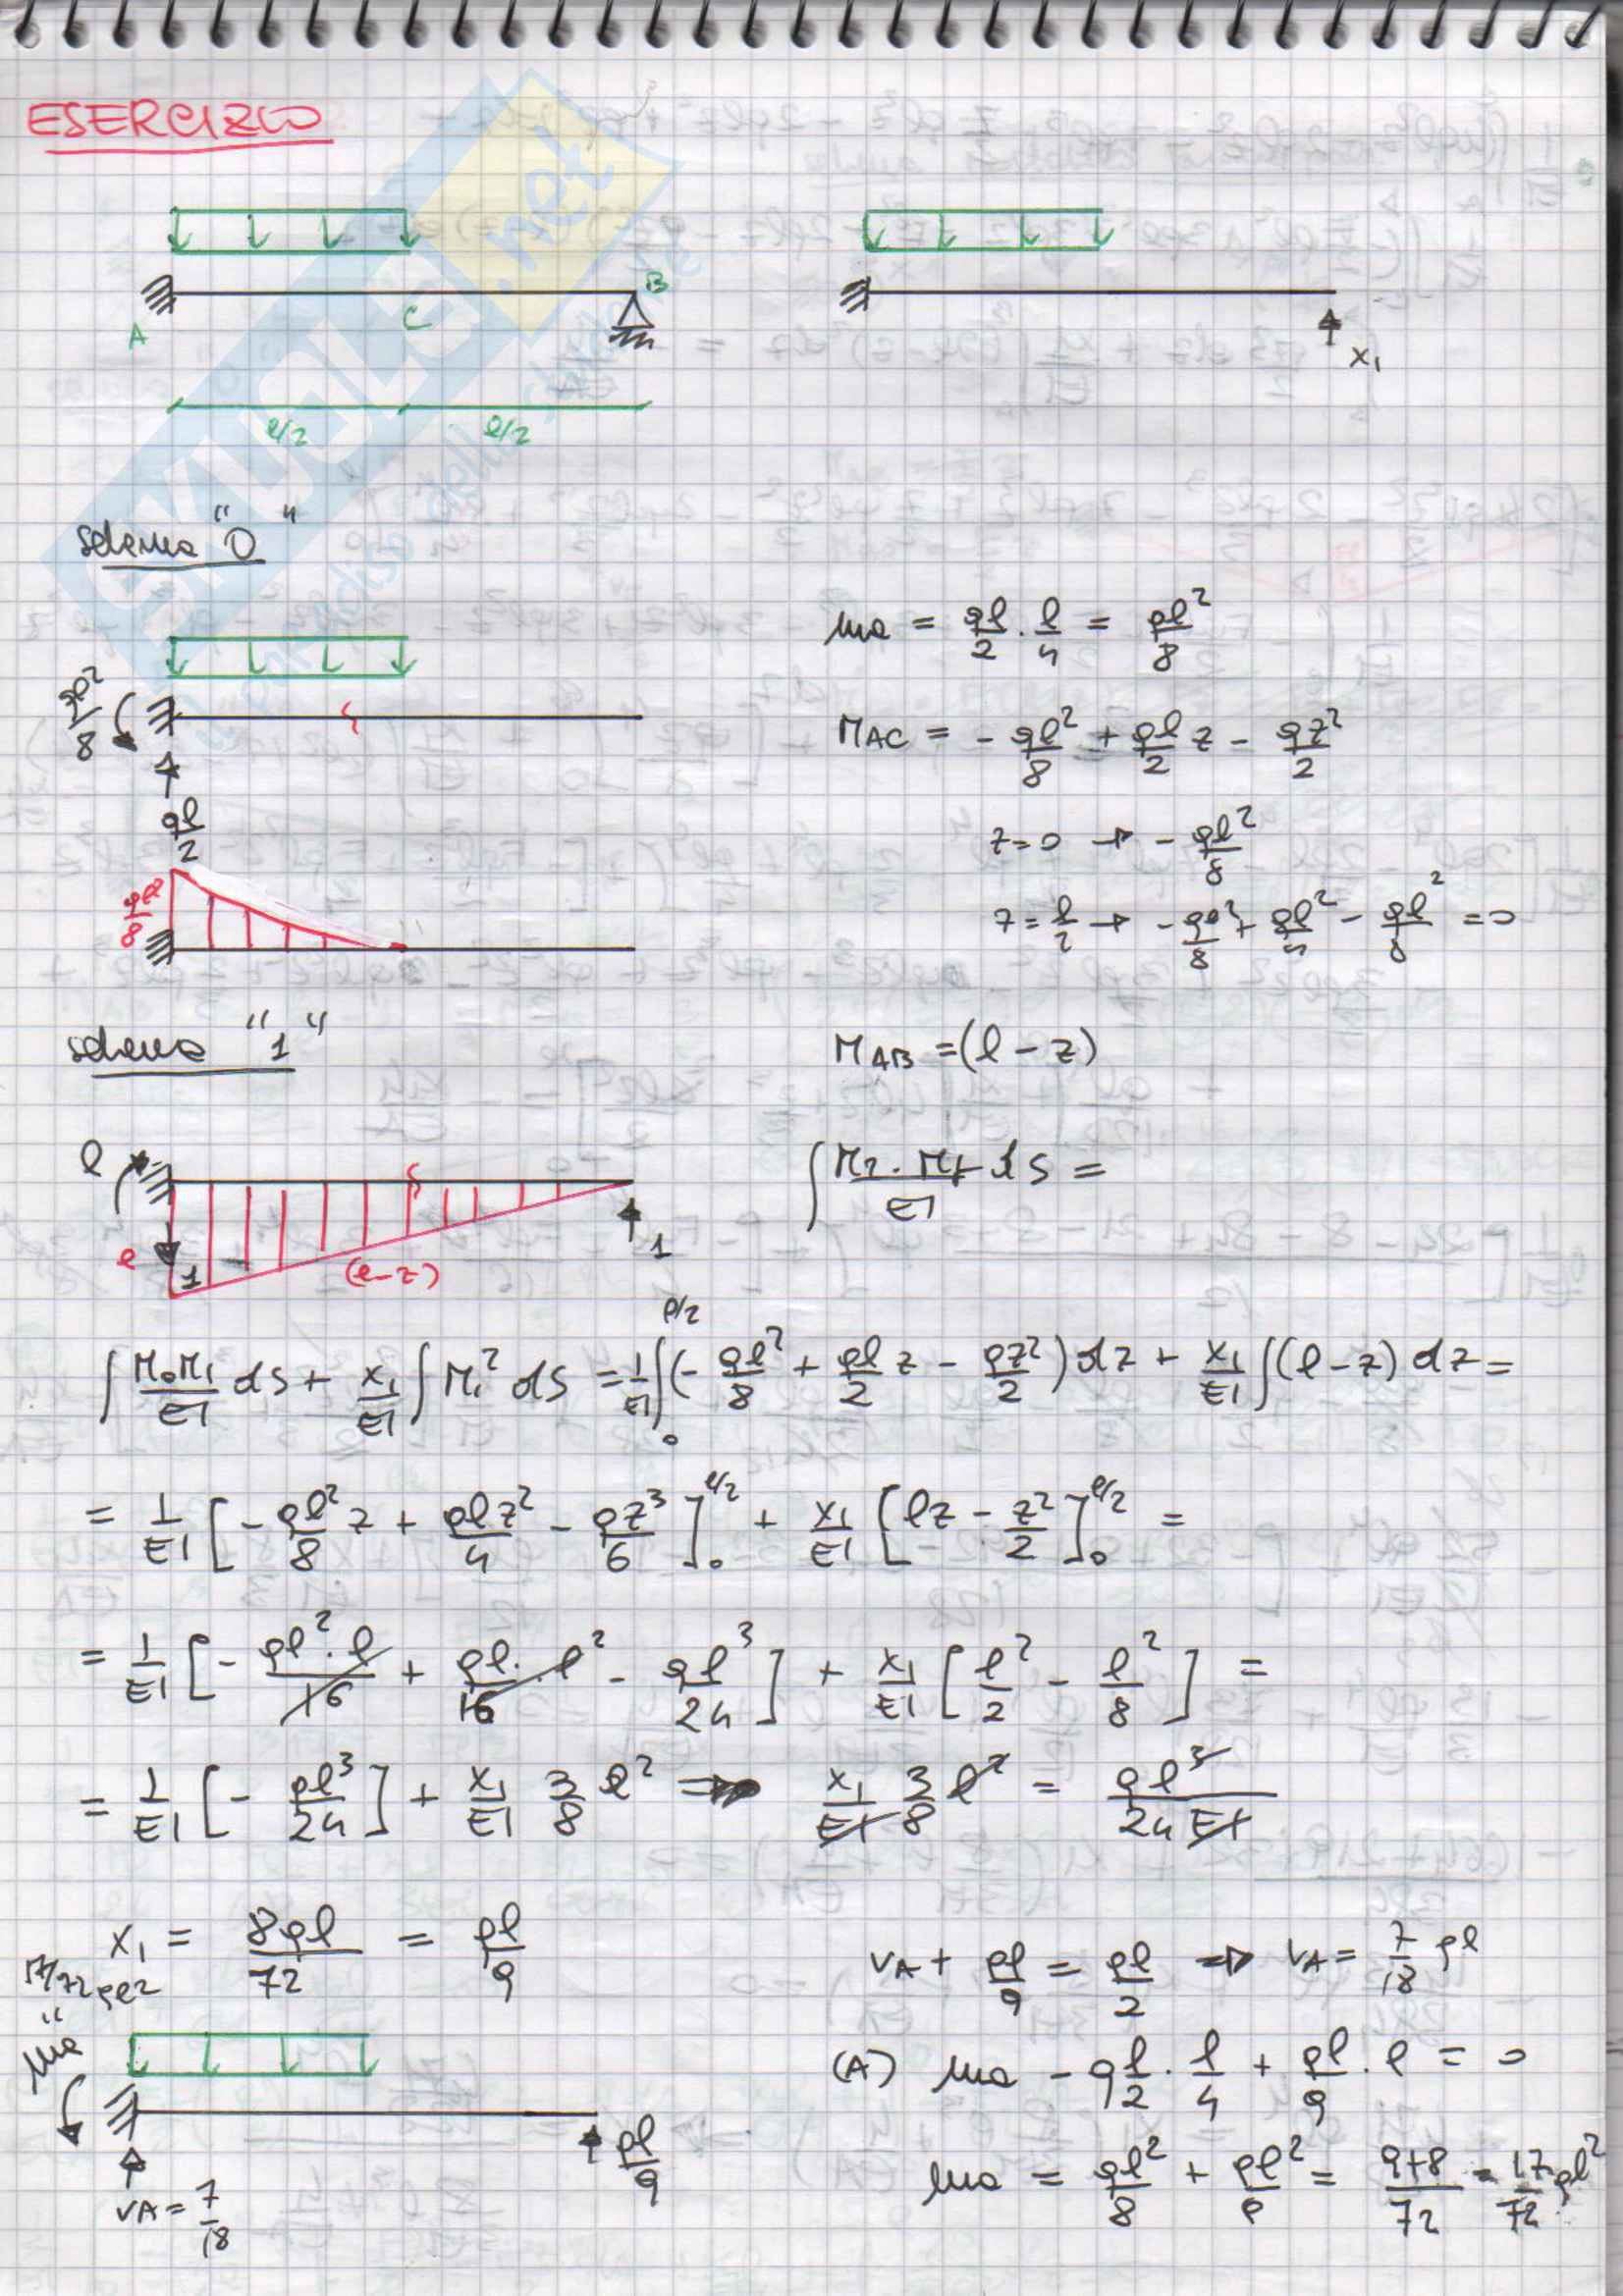 ESERCIZIO
A C B
x₁
l/2 l/2
schema "0"
ma = ql/2 · l/4 = ql²/8
ql²/8
M_AC = - ql²/8 + ql/2 z - qz²/2
ql/2
z=0 → - ql²/8
ql²/8
z = l/2 → - ql²/8 + ql²/4 - ql²/8 = 0
schema "1"
M_AB = (l - z)
l
l 1 (l-z) 1
∫ M₀M₁/EI ds + x₁/EI ∫ M₁² ds = 1/EI ∫₀^{l/2} (- ql²/8 + ql/2 z - qz²/2) dz + x₁/EI ∫ (l - z) dz =
= 1/EI [- ql²/8 z + qlz²/4 - qz³/6]₀^{l/2} + x₁/EI [lz - z²/2]₀^{l/2} =
= 1/EI [- ql²·l/16 + ql·l²/16 - ql³/24] + x₁/EI [l²/2 - l²/8] =
= 1/EI [- ql³/24] + x₁/EI 3/8 l² ⇒ x₁/EI 3/8 l² = ql³/24EI
x₁ = 8ql/72 = ql/9
V_A + ql/9 = ql/2 ⇒ V_A = 7/18 ql
17/72 ql²
"
ma
(A) ma - q l/2 · l/4 + ql/9 · l = 0
ql/9
V_A = 7/18
ma = ql²/8 + ql²/9 = 9+8/72 = 17/72 ql²
SKUOLA.net